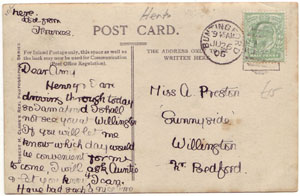 here.
love from
Frances.
Herts
POST CARD.
For Inland Postage only, this space as well as
the back may now be used for Communication
(Post Office Regulation).
THE ADDRESS
WRITTEN HERE.
BUNTINGFORD
06
Dear Amy
Henry & I are
driving through today
so I am afraid I shall
not see you at Willington
If you will let me
know which day would
be convenient for me
to come, I will ask Auntie
& let you know if I can.
Have had such a nice time
Miss A Preston
Sunnyside
Willington
Nr. Bedford.